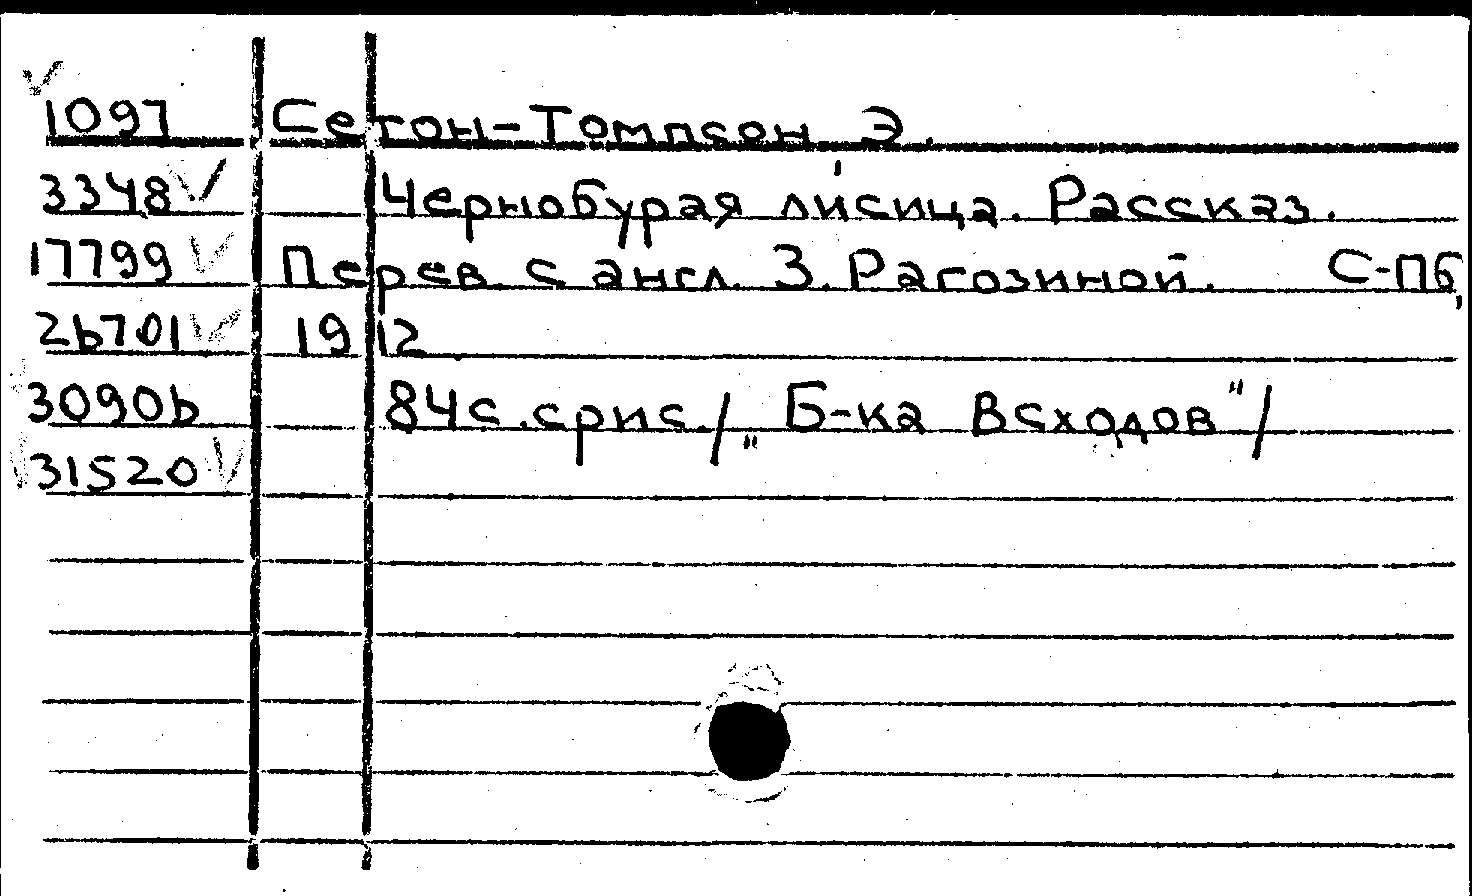 1097 Сетон-Томпсон Э.
3348 Чернобурая лисица. Рассказ.
17799 Перев. с англ. З. Рагозиной. С-Пб,
26701 1912
30906 84с. срис. / „Б-ка Всходов" /
31520